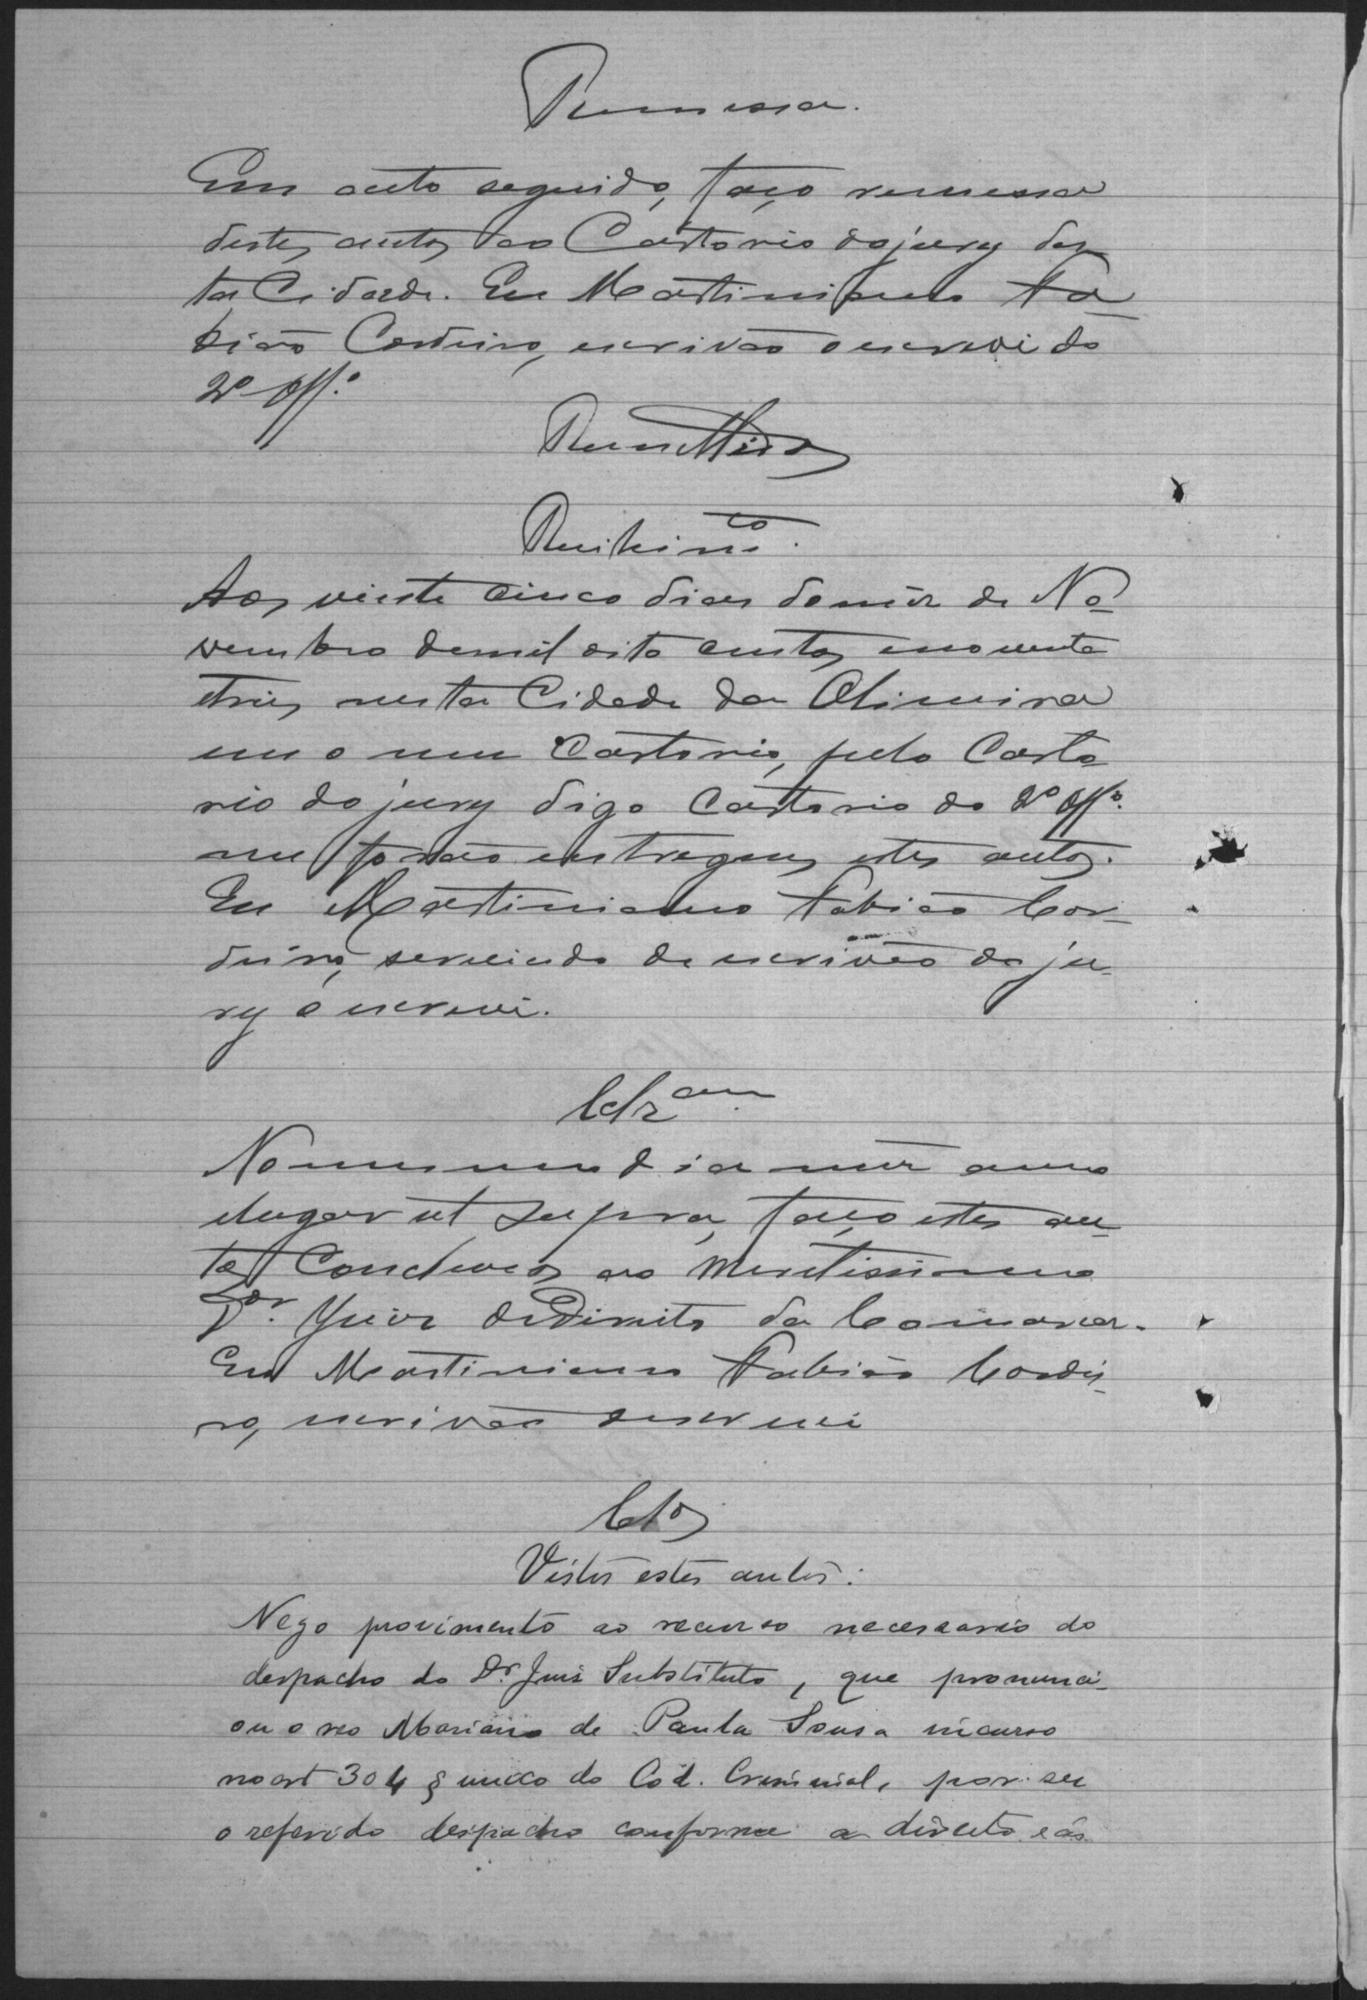 Remessa.
Em acto seguido, faço remessa
destes autos ao Cartorio do jury des
ta Cidade. Eu Martiniano Fa
bião Cordeiro, escrivão o escrevi do
2º Offº.
Remettido
Recebimto.
Aos vinte cinco dias do mêz de No
vembro de mil oito centos e noventa
e tres, nesta Cidade da Oliveira
em o meu Cartorio, pelo Carto
rio do jury digo Cartorio do 2º Offº.
me forão entregues estes autos.
Eu Martiniano Fabião Cor
deiro, servindo de escrivão do ju
ry o escrevi.
Clzam
No mesmo dia mêz anno
e lugar ut supra, faço estes au
tos Concluzos ao Meretissimo
Dor. Juiz de Direito da Comarca.
Eu Martiniano Fabião Cordei
ro, escrivão o escrevi
Clos
Vistos estes autos:
Nego provimento ao recurso necessario do
despacho do Dr. Juiz Substituto, que pronunci
ou o reo Mariano de Paula Sousa incurso
no art 304 § unico do Cod. Criminal, por ser
o referido despacho conforme a direito e ás